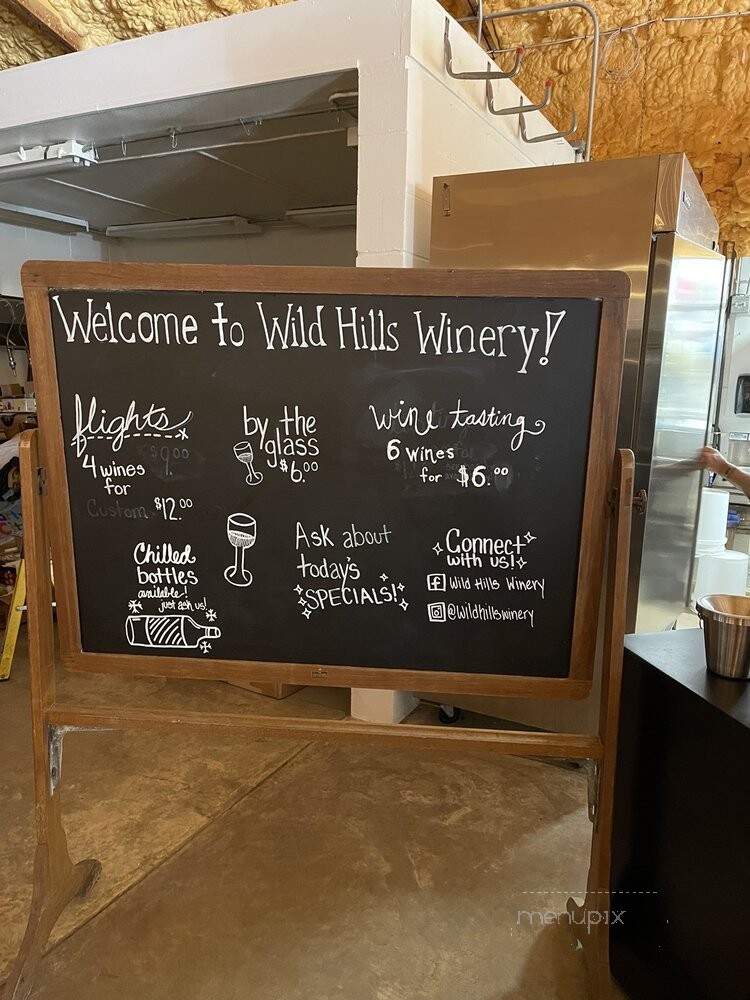 Welcome to Wild Hills Winery!
flights
4 wines
for
$9.00
Custom $12.00
by the
glass
$6.00
wine tasting
6 wines
for $6.00
Chilled
bottles
available!
just ask us!
Ask about
today's
SPECIALS!
Connect
with us!
f Wild Hills Winery
@wildhillswinery
menupix